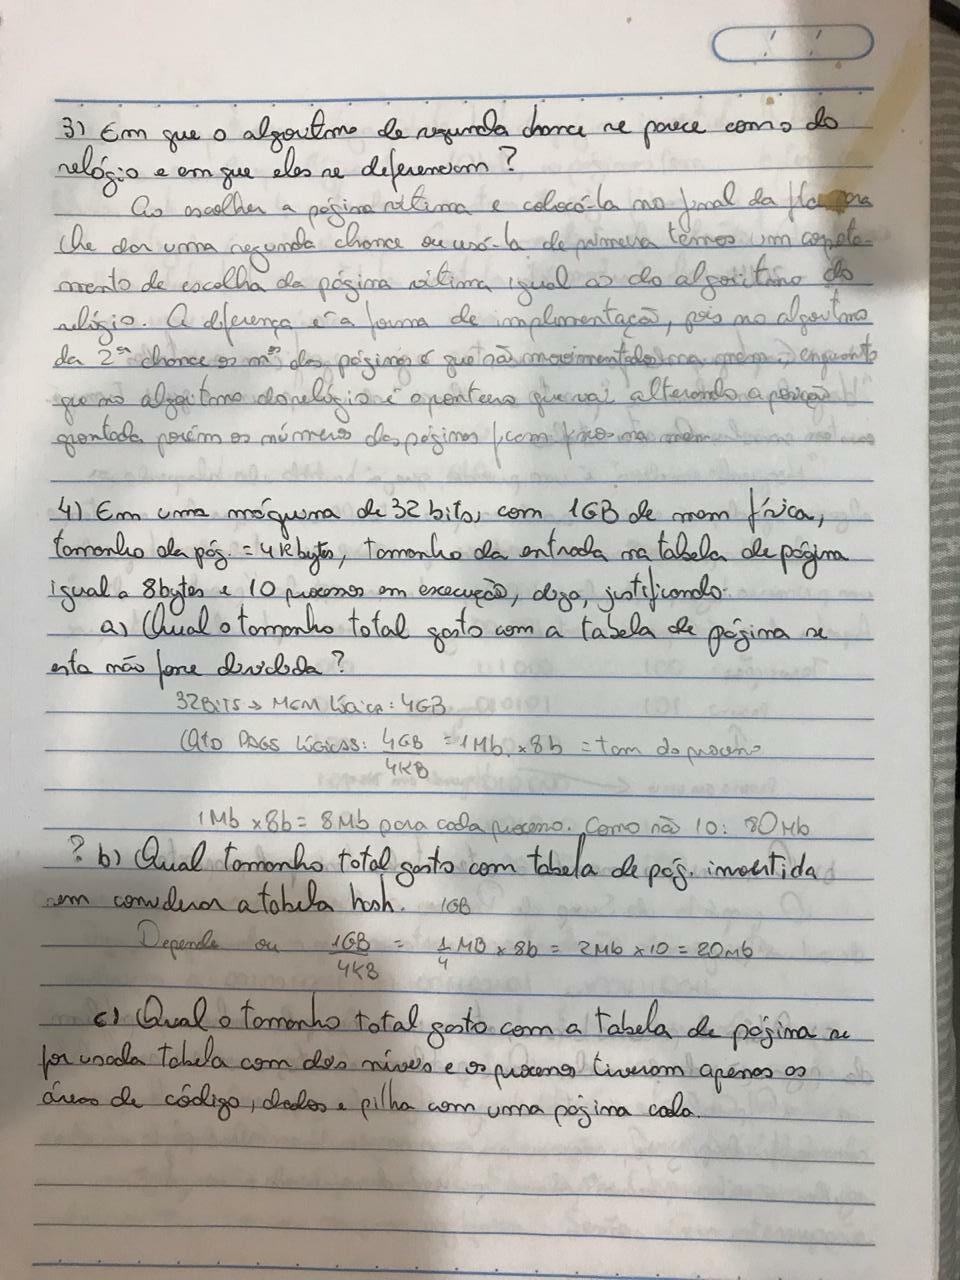 3) Em que o algoritmo de segunda chance se parece com o do
relógio e em que eles se diferenciam?
Ao escolher a página vítima e colocá-la no final da fila para
lhe dar uma segunda chance ou usá-la de primeira temos um
mento de escolha da página vítima igual ao do algoritmo do
relógio. A diferença é a forma de implementação, pois no algoritmo
da 2ª chance os nºs das páginas é que são movimentados na mem, enquanto
que no algoritmo do relógio é o ponteiro que vai alterando a posição
apontada porém os números das páginas ficam fixos na mem
4) Em uma máquina de 32 bits, com 1GB de mem física,
tamanho da pág. = 4Kbytes, tamanho da entrada na tabela de página
igual a 8bytes e 10 processos em execução, diga, justificando:
a) Qual o tamanho total gasto com a tabela de página se
esta não fosse dividida?
32BITS → MEM LÓGICA: 4GB
Qtd PAGS LÓGICAS: 4GB/4KB = 1Mb × 8b = tam do processo
1Mb × 8b = 8Mb para cada processo. Como são 10: 80Mb
? b) Qual tamanho total gasto com tabela de pág. invertida
sem considerar a tabela hash. 1GB
Depende ou 1GB/4KB = 1/4 MB × 8b = 2Mb × 10 = 20Mb
c) Qual o tamanho total gasto com a tabela de página se
for usada tabela com dois níveis e os processos tiverem apenas as
áreas de código, dados e pilha com uma página cada.